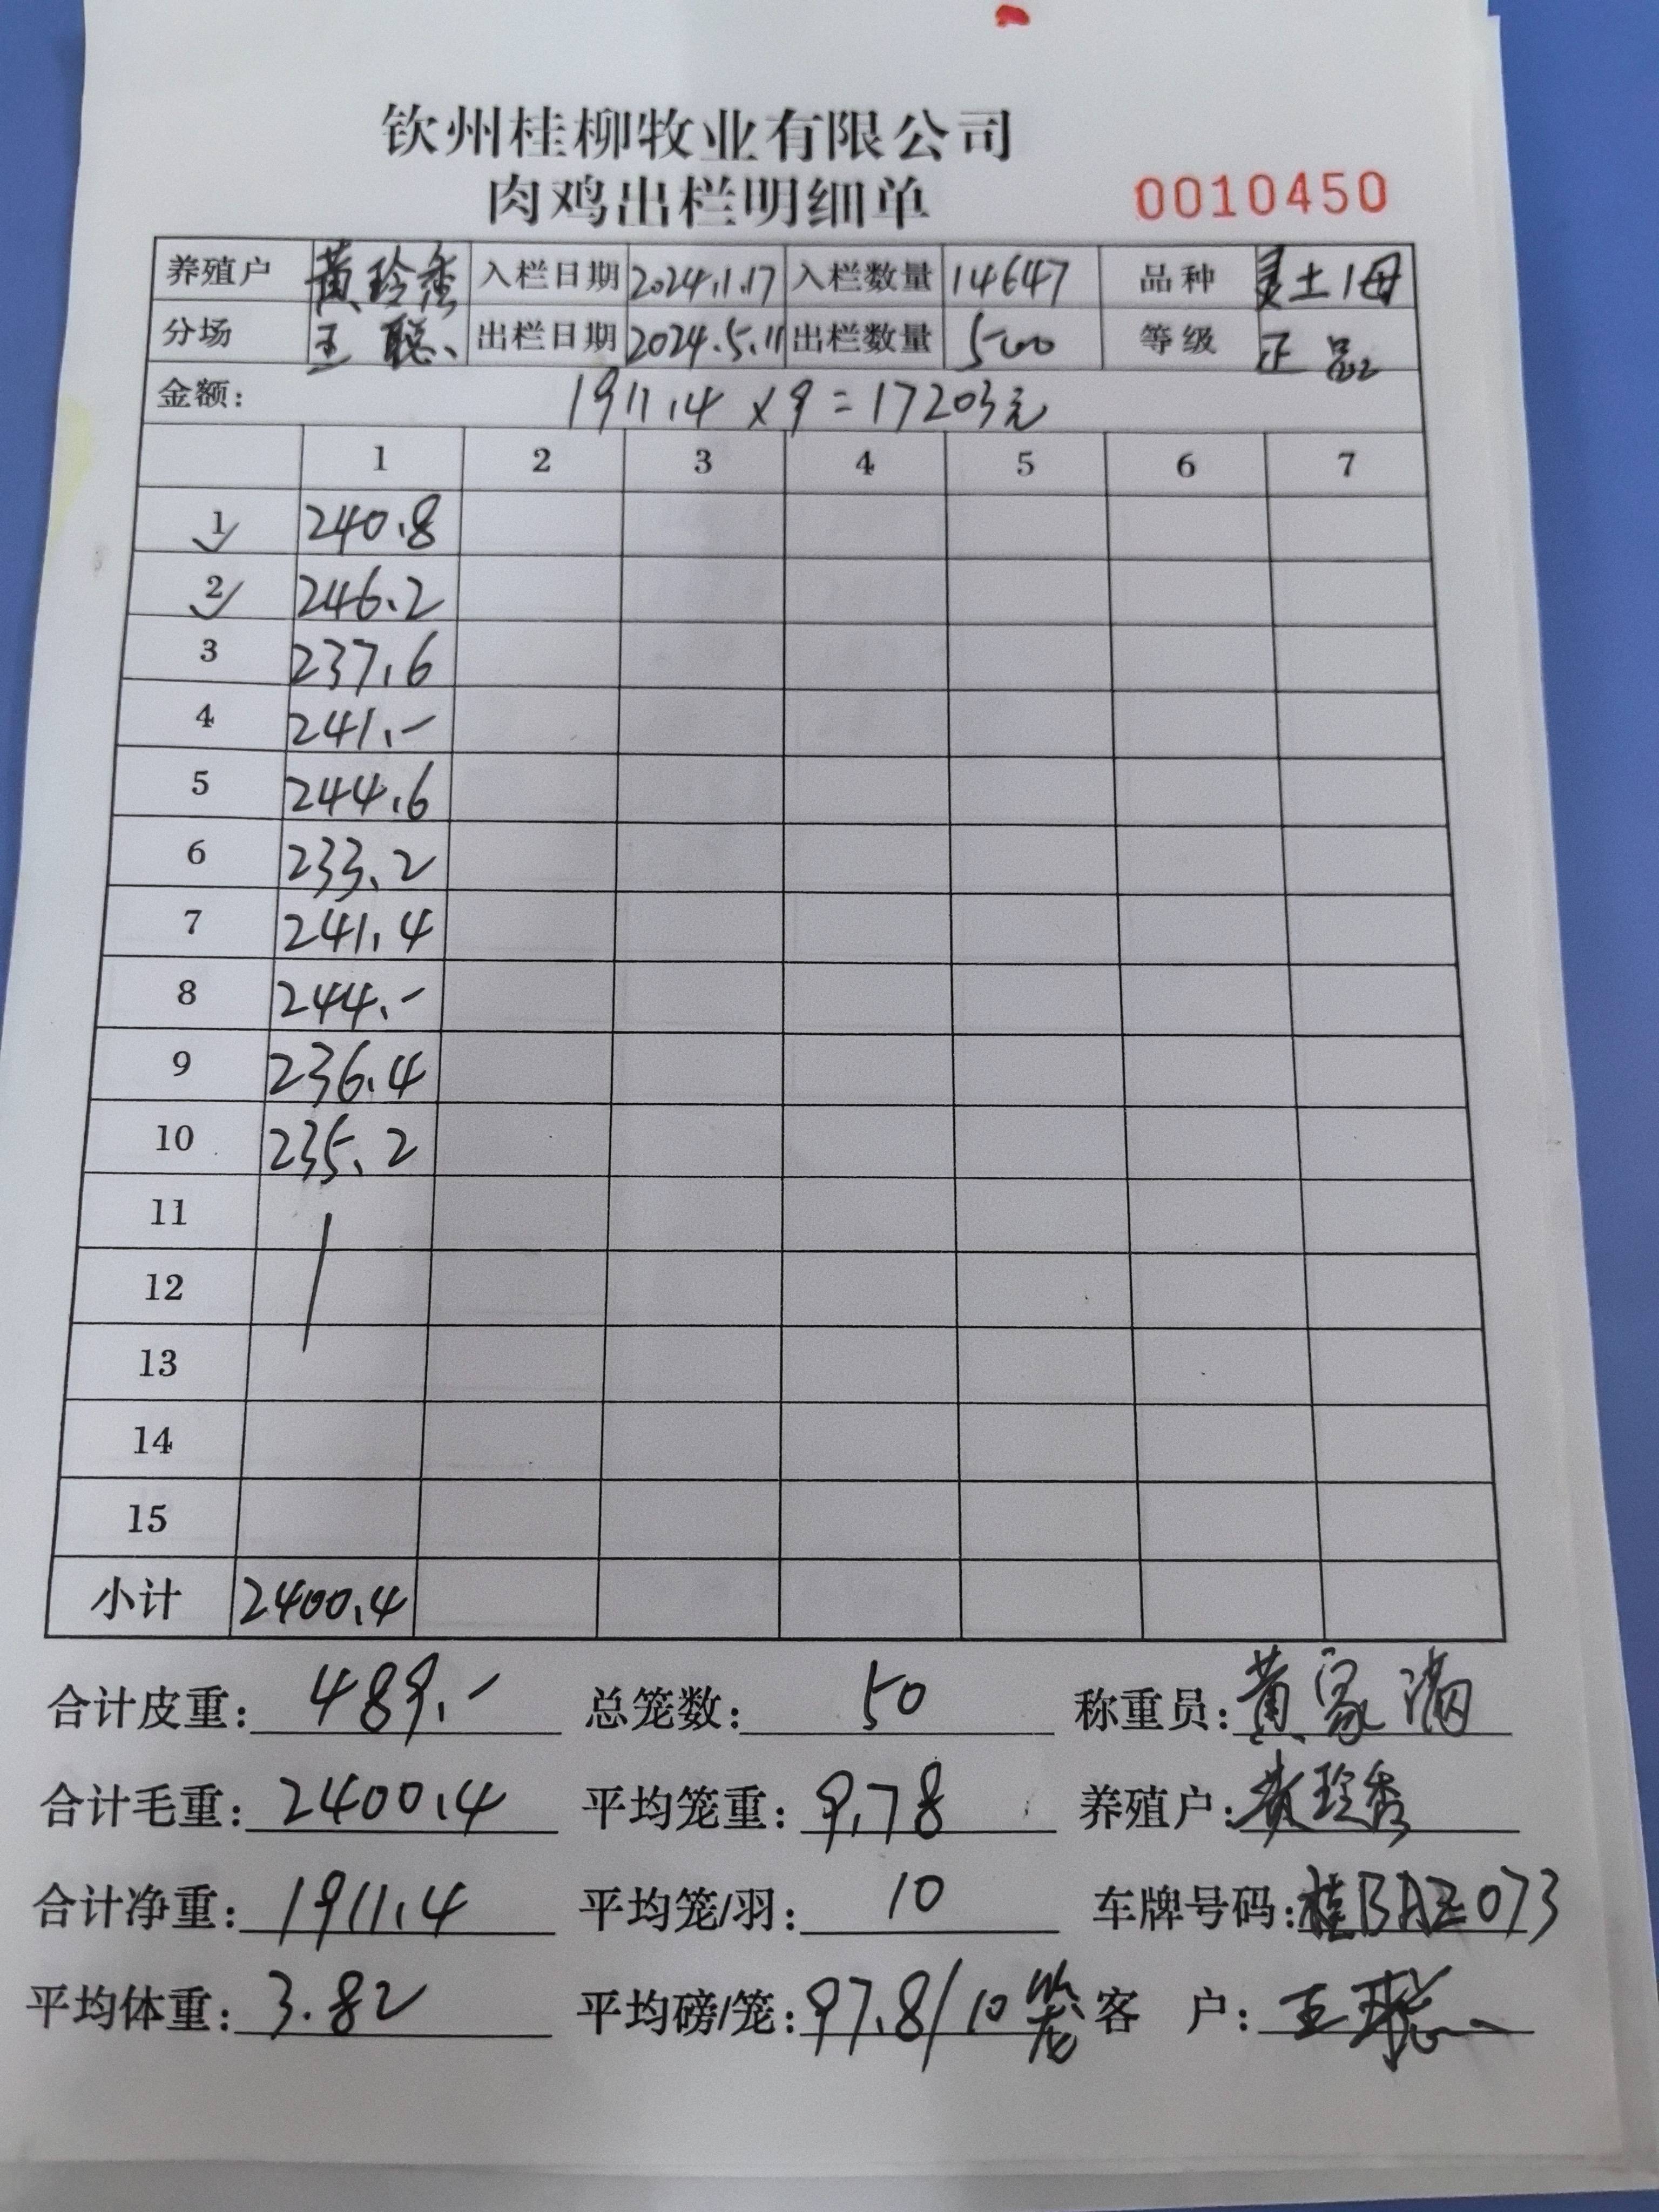 钦州桂柳牧业有限公司
肉鸡出栏明细单 0010450
养殖户 黄玲秀 入栏日期 2024.1.17 入栏数量 14647 品种 土1母
分场 王聪 出栏日期 2024.5.11 出栏数量 500 等级 正品
金额: 1911.4 x 9 = 17203元
1 2 3 4 5 6 7
1 240.8
2 246.2
3 237.6
4 241.-
5 244.6
6 233.2
7 241.4
8 244.-
9 236.4
10 235.2
11
12
13
14
15
小计 2400.4
合计皮重: 489.- 总笼数: 50 称重员: 黄家满
合计毛重: 2400.4 平均笼重: 9.78 养殖户: 黄玲秀
合计净重: 1911.4 平均笼/羽: 10 车牌号码: 桂BAZ073
平均体重: 3.82 平均磅/笼: 97.8/10笼 客 户: 王聪